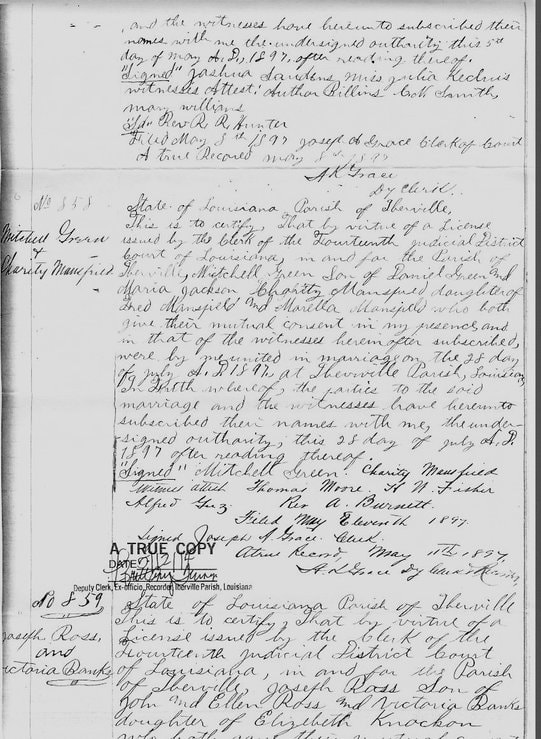 and the witnesses have hereunto subscribed their
names with me the undersigned authority this 5th
day of may A.D. 1897, after reading thereof.
"Signed" Joshua Sanders, Miss Julia
witnesses Attest: Author Billins C W Smith,
mary williams
Rev R. R. Hunter
Filed May 8th 1897 Joseph A Grace Clerk of Court
A true Record may 8th 1897
A K Grace
Dy Clerk.
No 858
Mitchell Green
&
Charity Mansfield
State of Louisiana, Parish of Iberville,
This is to certify, That by virtue of a License
issued by the Clerk of the Fourteenth Judicial District
Court of Louisiana, in and for the Parish of
Iberville, Mitchell Green Son of Daniel Green and
Maria Jackson Charity Mansfield daughter of
Fred Mansfield and Marella Mansfield who both
give their mutual consent in my presence, and
in that of the witnesses herein after subscribed,
were by me, united in marriage on the 28 day
of july A.D. 1897, at Iberville Parish, Louisiana,
In Faith whereof, the parties to the said
marriage and the witnesses have hereunto
subscribed their names with me, the under-
signed authority, this 28 day of july A.D.
1897 after reading thereof.
"Signed" Mitchell Green. Charity Mansfield
Witness attest Thomas Moore. H W Fisher
Alfred Rev A. Burnett.
Filed May Eleventh 1897.
Signed Joseph A Grace. Clerk.
A true Record, May 11th 1897
Grace Dy Clerk
A TRUE COPY
DATE
Deputy Clerk, Ex-officio, Recorder Iberville Parish, Louisiana
No 859
Joseph Ross,
and
Victoria Banks
State of Louisiana Parish of Iberville
This is to certify, That by virtue of a
License issued by the Clerk of the
Fourteenth Judicial District Court
of Louisiana, in and for the Parish
of Iberville, Joseph Ross Son of
John and Ellen Ross and Victoria Banks
daughter of Elizabeth Knockon
who both gave their mutual consent